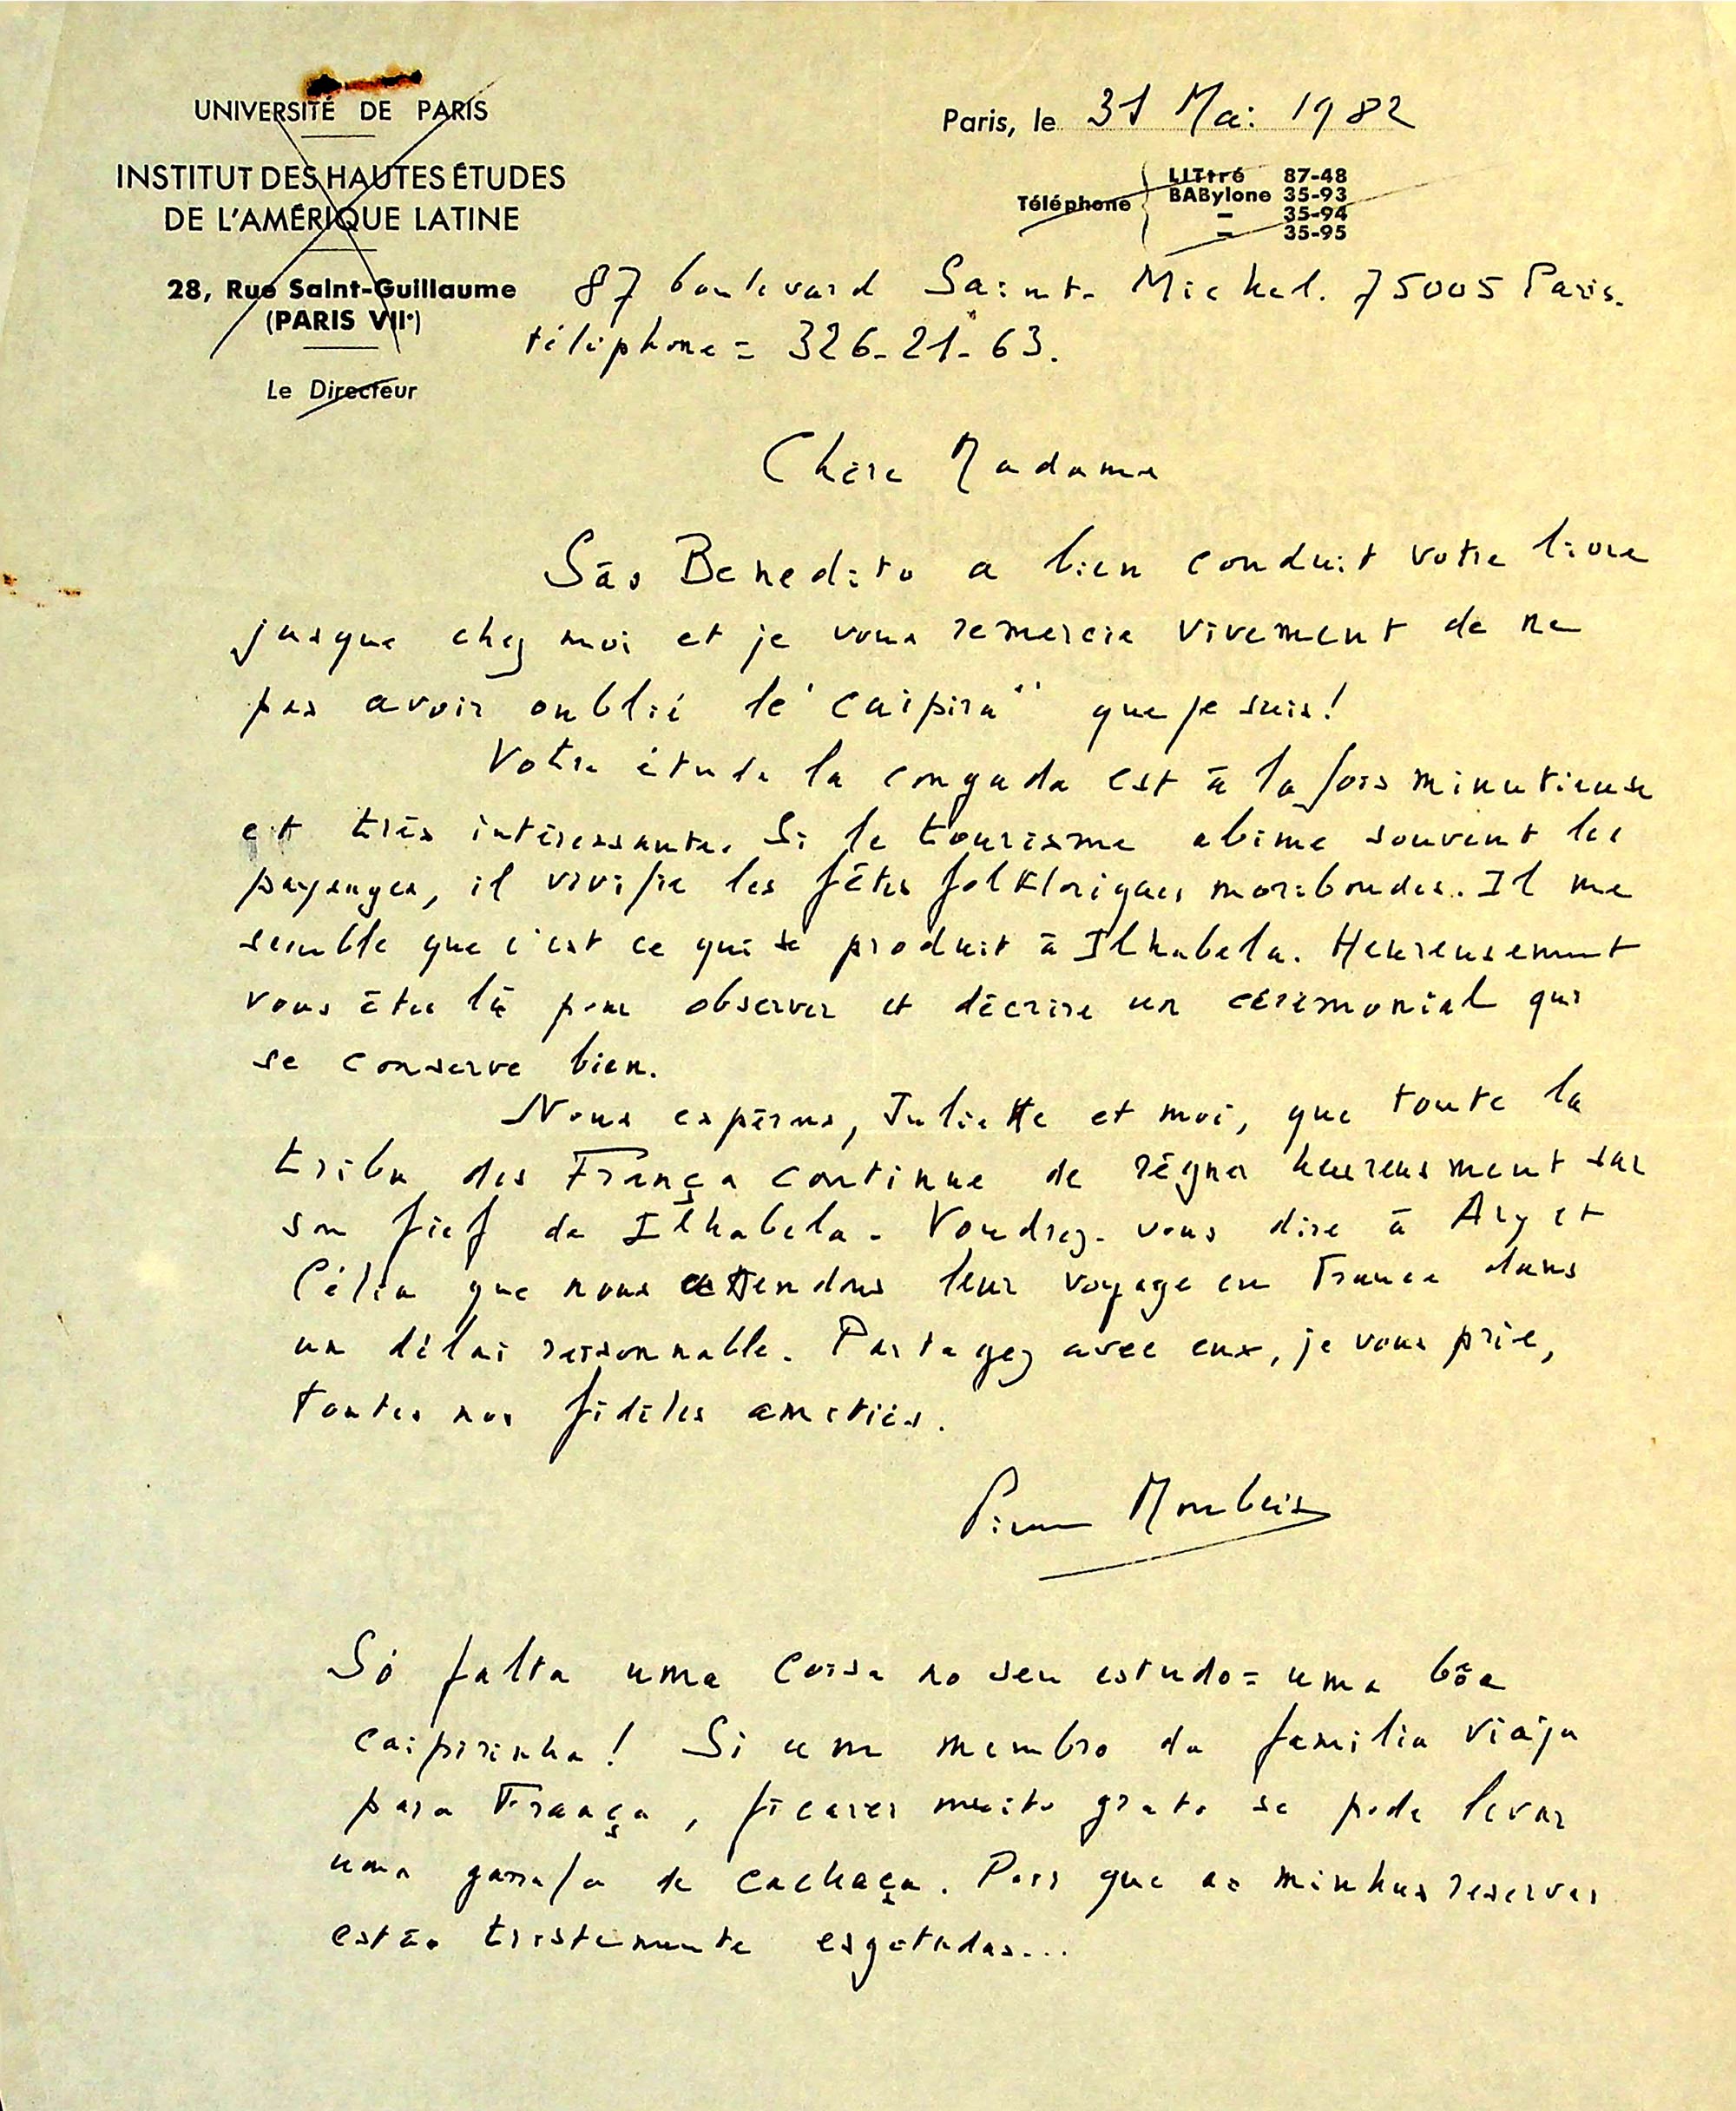 UNIVERSITÉ DE PARIS
INSTITUT DES HAUTES ÉTUDES
DE L'AMÉRIQUE LATINE
28, Rue Saint-Guillaume
(PARIS VIIe)
Le Directeur
Paris, le 31 Mai 1982
Téléphone
LITtré 87-48
BABylone 35-93
— 35-94
— 35-95
87 boulevard Saint-Michel. 75005 Paris.
téléphone = 326-21-63.
Chère Madame
São Benedito a bien conduit votre livre
jusque chez moi et je vous remercie vivement de ne
pas avoir oublié le "caïpira" que je suis!
Votre étude la congada est à la fois minutieuse
et très intéressante. Si le tourisme abime souvent les
paysages, il vivifie les fêtes folkloriques moribondes. Il me
semble que c'est ce qui se produit à Ilhabela. Heureusement
vous êtes là pour observer et décrire un cérémonial qui
se conserve bien.
Nous espérons, Juliette et moi, que toute la
tribu des França continue de régner heureusment sur
son fief de Ilhabela. Voudrez-vous dire à Ary et
Célia que nous attendons leur voyage en France dans
un délai raisonnable. Partagez avec eux, je vous prie,
toutes nos fidèles amitiés.
Pierre Monbeig
Só falta uma coisa no seu estudo = uma bôa
caipirinha! Si um membro da familia viaja
para França, ficarei muito grato se pode levar
uma garrafa de cachaça. Pois que as minhas reservas
estão tristemente esgotadas...